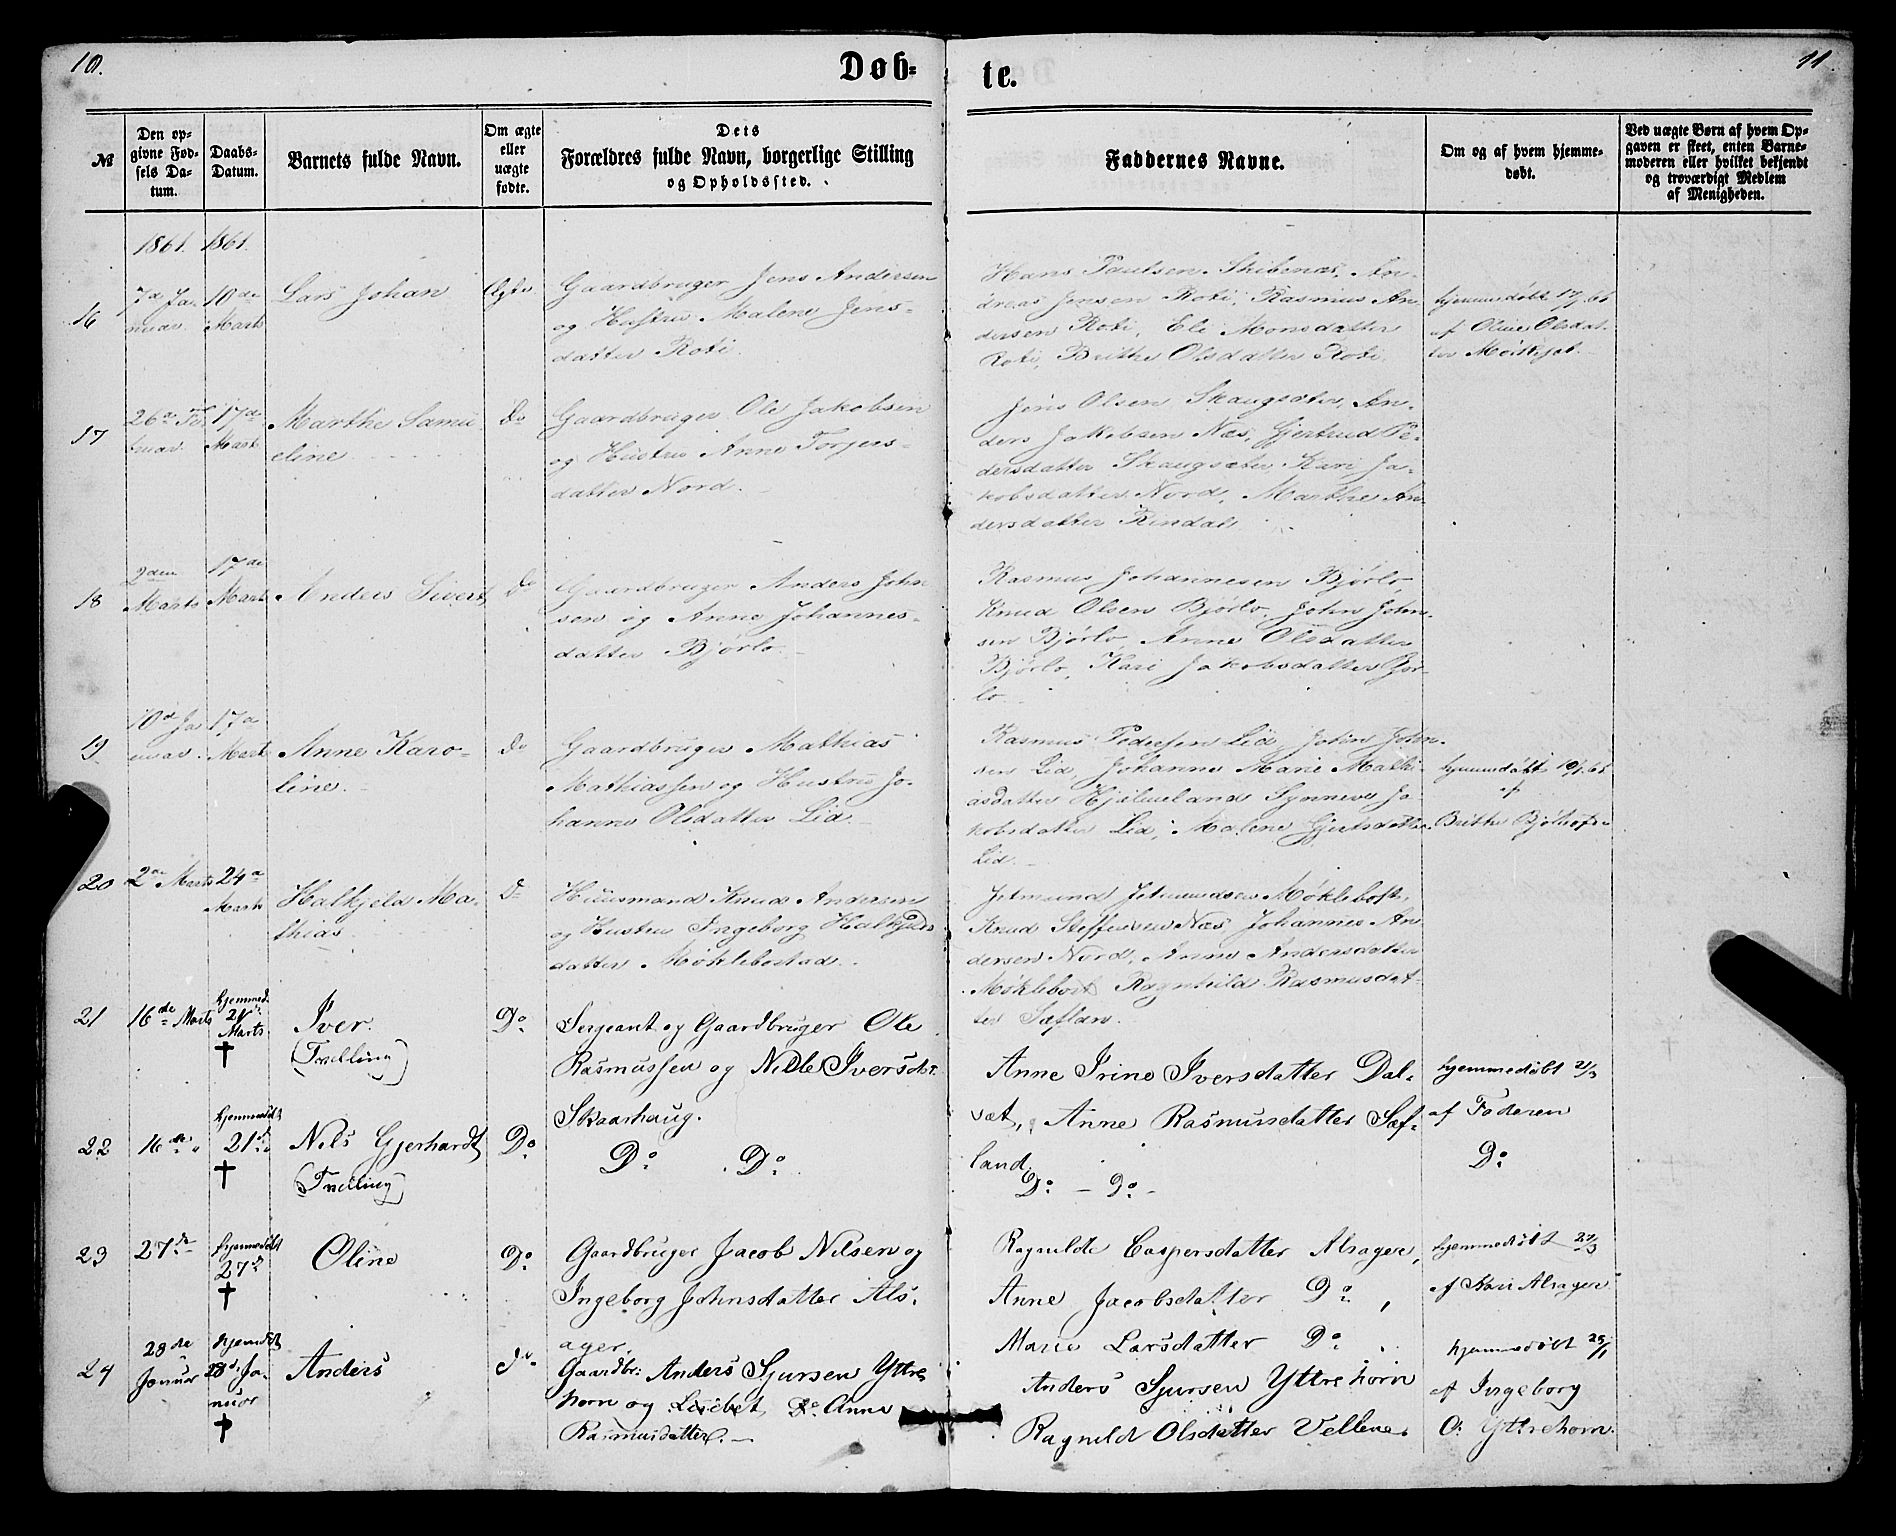 10.
Døb=
te.
11.
№
Den op=
givne Fød=
sels Da=
tum.
Daabs=
Datum.
Barnets fulde Navn.
Om ægte
eller
uægte
fødte.
Dets
Forældres fulde Navn, borgerlige Stilling
og Opholdssted.
Faddernes Navne.
Om og af hvem hjemme=
døbt.
Ved uægte Børn af hvem Op=
gaven er skeet, enten Barne=
moderen eller hvilket bekjendt
og troværdigt Medlem
af Menigheden.
1861. 1861.
16
7d Ja-
nuar
10de
Marts
Lars Johan
Ægte
Gaardbruger Jens Andersen
og Hustru Malene Jens-
datter Roti.
Hans Paulsen Skibenæs, An-
dreas Jensen Roti, Rasmus An-
dersen Roti, Eli Monsdatter
Roti, Brithe Olsdatter Roti.
hjemmedøbt 17/1 61
af Oline Olsdat-
ter
17
17de
Marts
Marthe Samu
eline
Do
Gaardbruger Ole Jakobsen
og Hustru Anne Torjers-
datter Nord.
Jens Olsen Skaugsæter, An-
ders Jakobsen Næs, Gjertrud Pe-
dersdatter Skaugsæter, Kari Ja-
kobsdatter Nord, Marthe An-
dersdatter Rindal
18
2den
Marts
17de
Marts
Anders Sivert
Do
Gaardbruger Anders John
sen og Anne Johannes-
datter Bjørlo.
Rasmus Johannesen Bjørlo,
Knud Olsen Bjørlo, John John-
sen Bjørlo, Anne Olsdatter
Bjørlo, Kari Jakobsdatter Bjør-
lo
19
10d Ja
nuar.
17d
Marts
Anne Karo-
line.
Do
Gaardbruger Mathias
Mathiassen og Hustru Jo-
hanne Olsdatter Lid.
Rasmus Pedersen Lid, John John-
sen Lid, Johanne Marie Mathi-
asdatter Hjelmeland Synneve Ja-
kobsdatter Lid, Malene Gjertsdatter
Lid.
hjemmedøbt 10/1 61
af
Brithe
20
2de Marts
24d
Marts
Halkjeld Ma-
thias
Do
Huusmand Knud Andersen
og Hustru Ingeborg Halkjelds
datter Møklebostad.
Jetmund Jetmundsen Møklebost,
Knud Steffensen Næs, Johannes An
dersen Nord, Anne Andersdatter
Møklebost Ragnhild Rasmusdat-
ter Sæfland.
21
16de Marts
hjemmed.
21
Marts.
†
Iver.
(Tvilling)
Do
Sergeant og Gaardbruger Ole
Rasmussen og Nille Iversdtr
Skaarhaug.
Anne Irine Iversdatter Dal-
sæt, Anne Rasmusdatter Sæf-
land.
hjemmedøbt 21/3
af Faderen
22
16de "
hjemmedøbt
21de
†
Nils Gjerhardt
(Tvilling)
Do
Do Do
Do - Do -
Do
23
27de
hjemmedøbt
27de
†
Oline
Do
Gaardbruger Jacob Nilsen og
Ingeborg Johnsdatter Als-
ager.
Ragnilde Caspersdatter Alsager,
Anne Jacobsdatter Do,
Marie Larsdatter Do.
hjemmedøbt 27/3
af Kari Alsager
24
28de
Januar
hjemdøbt
28de Ja-
nuar
†
Anders
Do
Gaardbr: Anders Sjursen Yttre
horn og Do Anne
Rasmusdatter.
Anders Sjursen Yttrehorn
Ragnild Olsdatter Vellene.
hjemmedøbt 28/1
af Ingeborg
O: Yttrehorn.